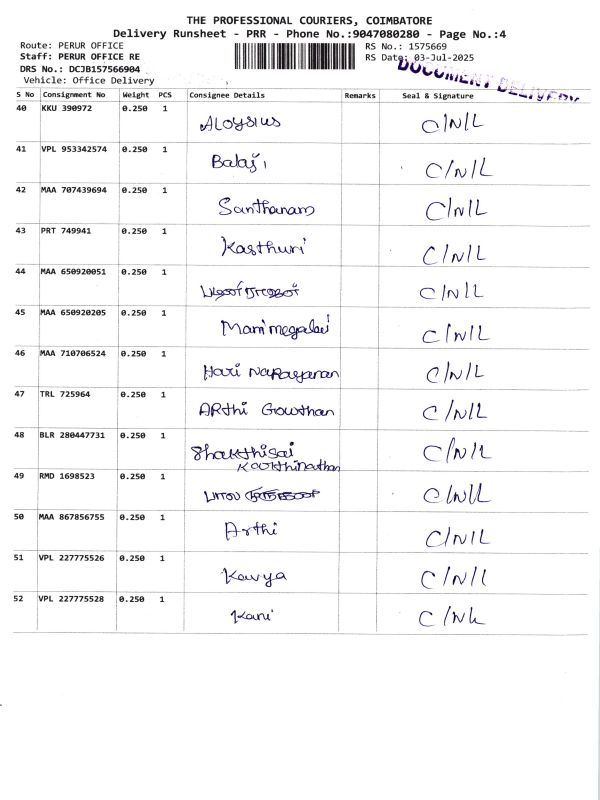 THE PROFESSIONAL COURIERS, COIMBATORE
Delivery Runsheet - PRR - Phone No.:9047080280 - Page No.:4
Route: PERUR OFFICE RS No.: 1575669
Staff: PERUR OFFICE RE RS Date: 03-Jul-2025
DRS No.: DCJB157566904 DOCUMENT DELIVERY
Vehicle: Office Delivery
S No Consignment No Weight PCS Consignee Details Remarks Seal & Signature
40 KKU 390972 0.250 1 Aloysius C/N/L
41 VPL 953342574 0.250 1 Balaji C/N/L
42 MAA 707439694 0.250 1 Santhanam C/N/L
43 PRT 749941 0.250 1 Kasthuri C/N/L
44 MAA 650920051 0.250 1 C/N/L
45 MAA 650920205 0.250 1 Manimegalai C/N/L
46 MAA 710706524 0.250 1 Hari Narayanan C/N/L
47 TRL 725964 0.250 1 ARthi Gowthan C/N/L
48 BLR 280447731 0.250 1 Shakthisai C/N/L
Kaarthinathan
49 RMD 1698523 0.250 1 C/N/L
50 MAA 867856755 0.250 1 Arthi C/N/L
51 VPL 227775526 0.250 1 Kavya C/N/L
52 VPL 227775528 0.250 1 Kani C/N/L